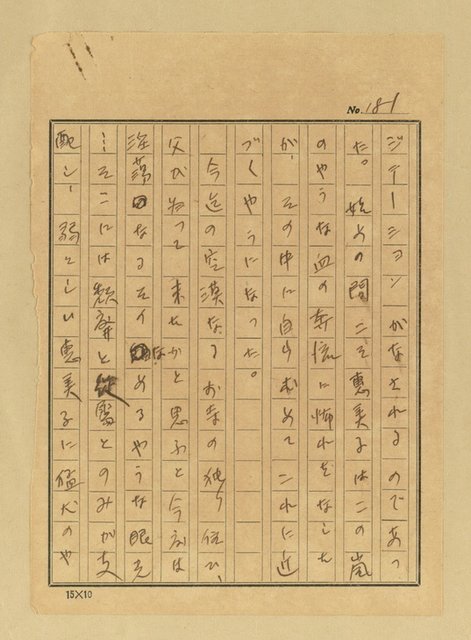 No. 181
ジテーションがなされるのであつ
た。始めの間こそ惠美子はこの嵐
のやうな血の奔流に怖れをなした
が、その中に自ら求めてこれに近
づくやうになつた。
今迄の空漠なるお寺の独り住ひ、
父が帰つて来たかと思ふと今度は
淫蕩なるそのなめるやうな眼光
…そこには頽廃とのみが支
配し、弱々しい惠美子に猛犬のや
15×10